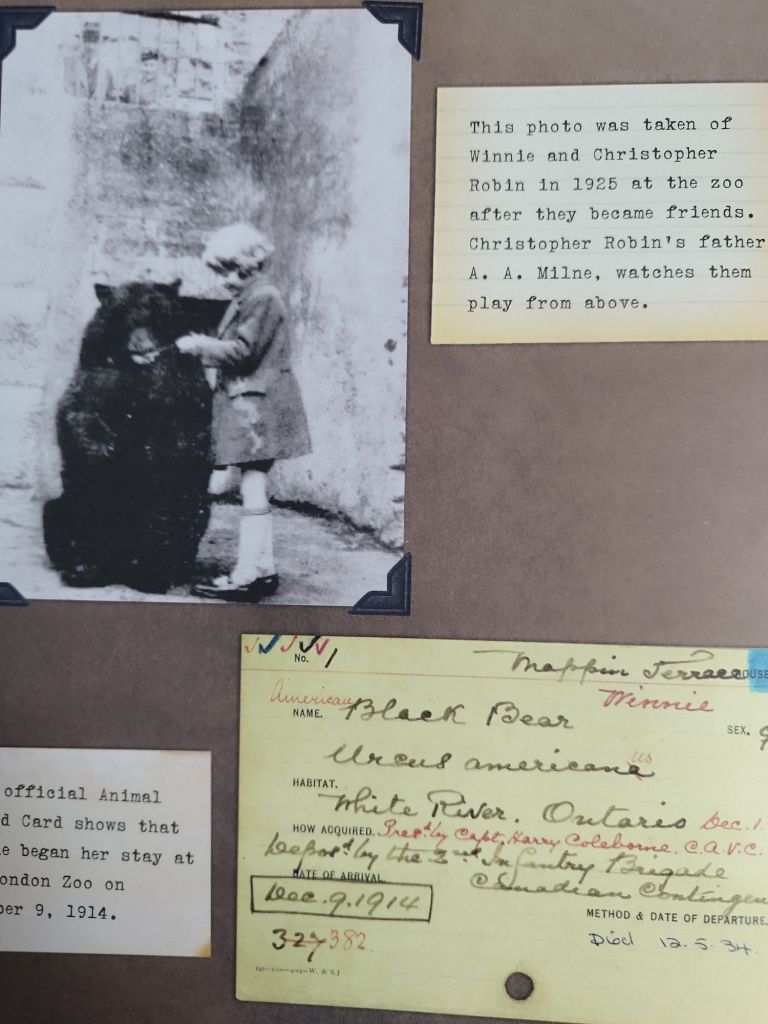 This photo was taken of
Winnie and Christopher
Robin in 1925 at the zoo
after they became friends.
Christopher Robin's father
A. A. Milne, watches them
play from above.
No. 1
Mappin Terrace
Winnie
American
NAME. Black Bear
SEX. ♀
Ursus americanus
HABITAT.
White River, Ontario
HOW ACQUIRED. Pres'd by Capt. Harry Colebourne, C.A.V.C. Dec. 1.
Depos'd by the 2nd Infantry Brigade
DATE OF ARRIVAL. Canadian Contingen
Dec. 9. 1914
METHOD & DATE OF DEPARTURE.
Died 12-5-34.
327 382
official Animal
d Card shows that
e began her stay at
ondon Zoo on
ber 9, 1914.